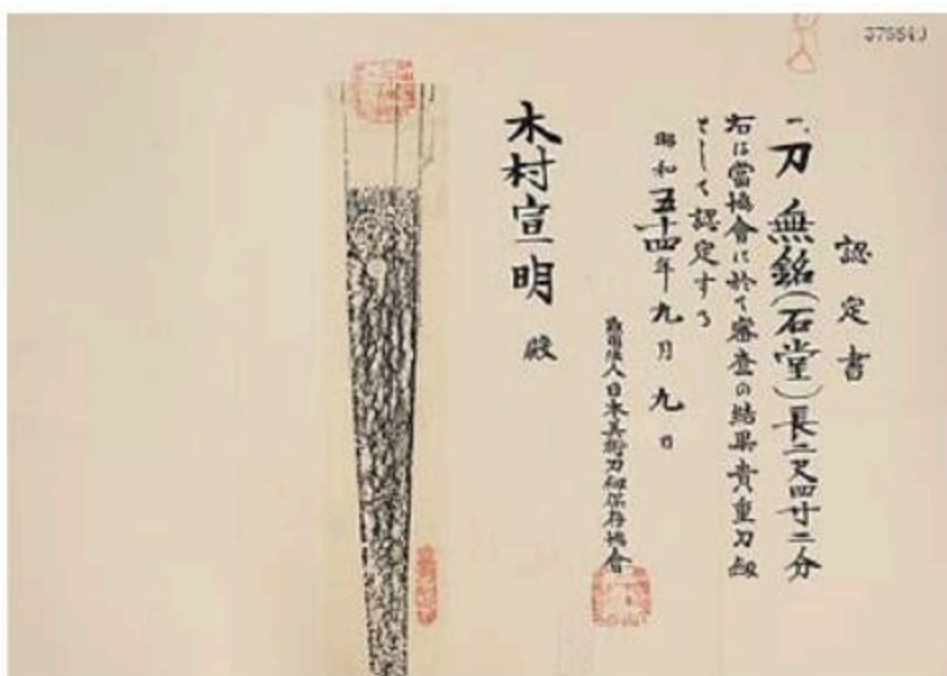 認定書
一、刀 無銘(石堂)長二尺四寸二分
右は當協會に於て審査の結果貴重刀劔
として認定する
昭和五十四年九月九日
財団法人日本美術刀劔保存協會
木村宣明 殿